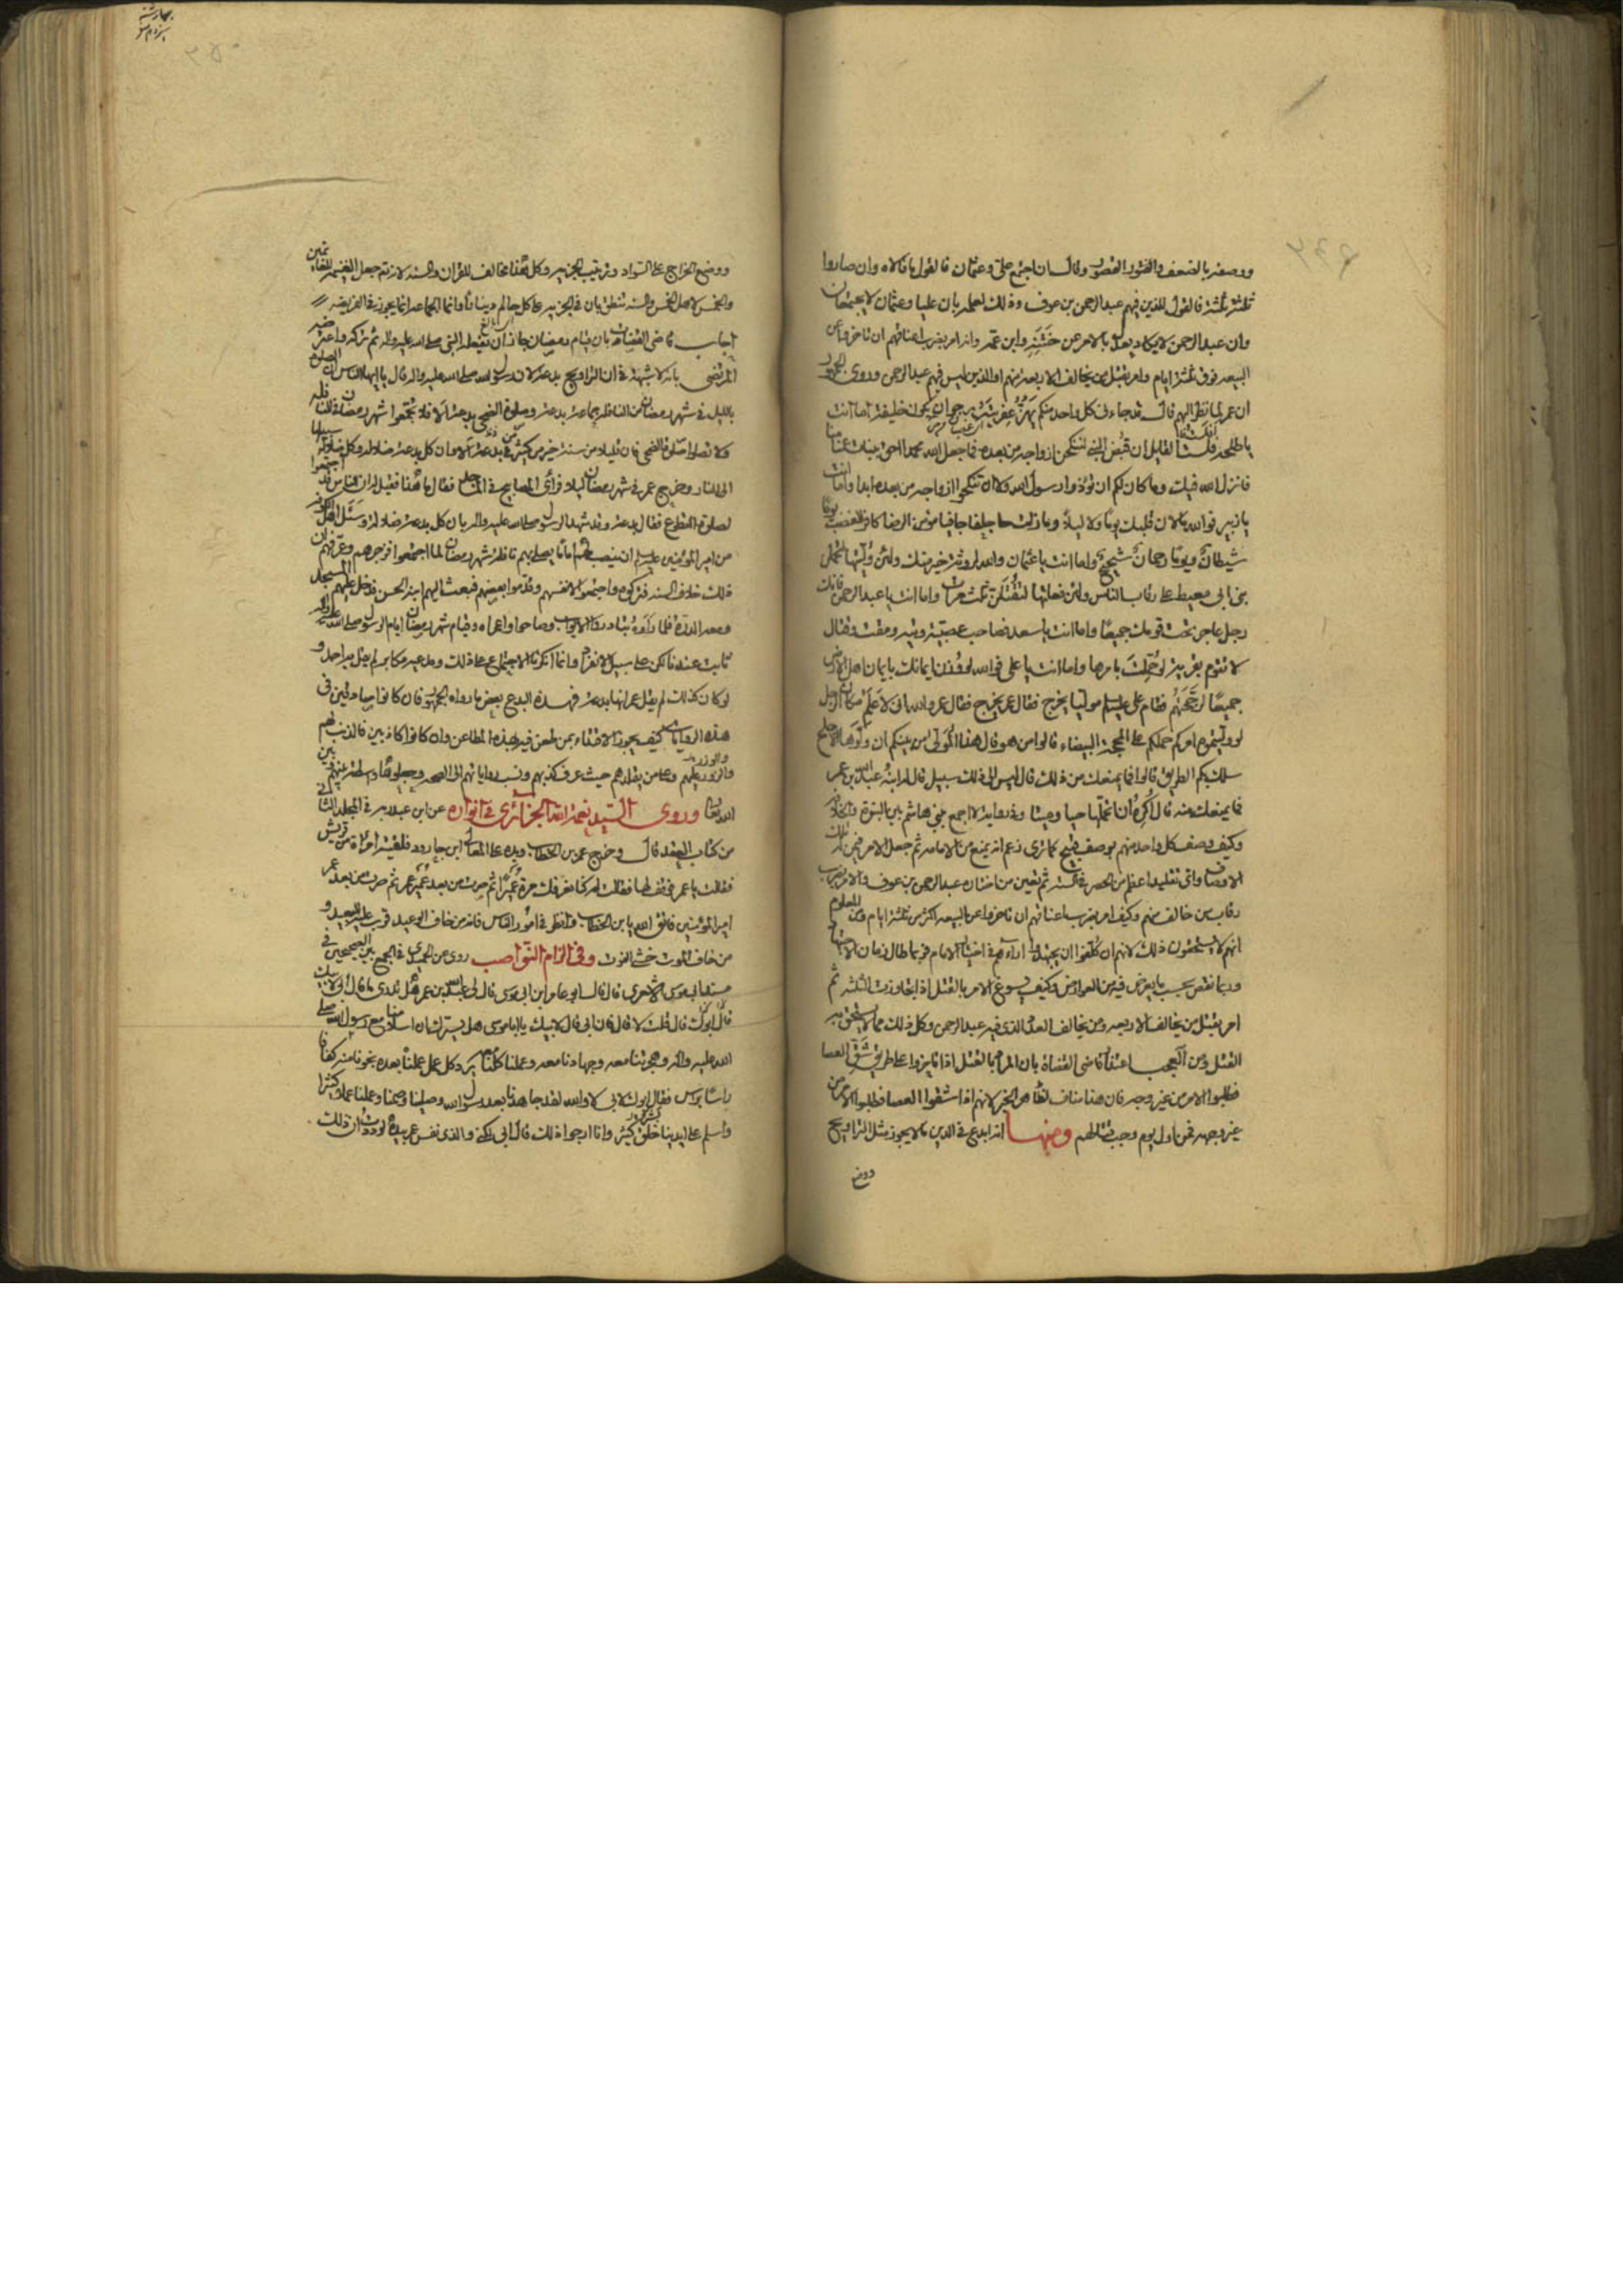 ووصفه بالضعف والفتور القصور وقال ان اجتمع علی وعثمان فالقول ما قالاه وان صاروا
ثلثة ثلثة فالقول للذین فیهم عبد الرحمن بن عوف وذلك لعلمه بان علیا وعثمان لا یجتمعان
وان عبد الرحمن لا یکاد یعدل بالامر عن ختنه وابن عمه وانه امر بضرب اعناقهم ان تاخروا عن
البیعه فوق ثلثة ایام وامر بقتل من یخالف الاربعه منهم او الذین لیس فیهم عبد الرحمن وروی الجمهور
ان عمر لما نظر الیهم قال قد جاءنی کل واحد منکم یهز عفریته یرجو ان یکون خلیفة اما انت
یا طلحه افلست القایل ان قبض النبی لننکحن ازواجه من بعده فما جعل الله محمدا احق ببنات عمنا منا
فانزل الله فیك وما کان لکم ان تؤذوا رسول الله ولا ان تنکحوا ازواجه من بعده ابدا واما انت
یا زبیر فوالله ما لان قلبك یوما ولا لیلا وما زلت جلفا جافیا مؤمن الرضا کافر الغضب یوما
شیطان ویوما رحمان شحیح واما انت یا عثمان والله لروثة خیر منك ولئن ولیتها لتحملن
بنی ابی معیط علی رقاب الناس ولئن فعلتها لتقتلن ثلث مرات واما انت یا عبد الرحمن فانك
رجل عاجز تحت قومك جمیعا واما انت یا سعد فصاحب عصبیة وفتنه ومقت وقتال
لا تقوم بقریة لو حملت بامرها واما انت یا علی فوالله لو وزن ایمانك بایمان اهل الارض
جمیعا لرجحتهم فقام علی علیه السلم مولیا یخرج فقال عمر والله انی لاعلم مکان الرجل
لو ولیتموه امرکم حملکم علی المحجة البیضاء قالوا من هو قال هذا المولی من بینکم ان ولوها الاجلح
سلك بکم الطریق قالوا فما یمنعك من ذلك قال لیس الی ذلك سبیل قال له ابنه عبد الله بن عمر
فما یمنعك منه قال اکره ان اتحملها حیا ومیتا وفی روایة لا اجمع لبنی هاشم بین النبوة والخلافه
وکیف وصف کل واحد منهم بوصف قبیح کما تری زعم انه یمنع من الامامه ثم جعل الامر فیمن له تلك
الاوصاف وای تقلید اعظم من الحصر فی السته ثم تعیین من اختاره عبد الرحمن بن عوف والامر بضرب
رقاب من خالف منهم وکیف امر بضرب اعناقهم ان تاخروا عن البیعه اکثر من ثلثة ایام ومن المعلوم
انهم لا یستحقون ذلك لانهم ان کلفوا ان یجتهدوا اراءهم فی اختیار الامام فربما طال زمان الاجتهاد
وربما نقص بحسب ما یعرض فیه من العوارض وکیف یسوغ الامر بالقتل اذا تجاوزت الثلثه ثم
امر بقتل من یخالف الاربعه ومن یخالف العدد الذی فیه عبد الرحمن وکل ذلك مما لا یستحق به
القتل ومن العجب اعتذار قاضی القضاة بان المراد بالقتل اذا تابزوا علی طریق شق العصا
وطلبوا الامر من غیر وجه فان هذا مناف لظاهر الخبر لانهم اذا شقوا العصا وطلبوا الامر من
غیر وجهه فمن اول یوم وجب قتالهم ومنها انه ابدع فی الدین ما لا یجوز مثل التراویح
ووضع
ووضع الخراج علی السواد وترتیب الجزیه وکل هذا مخالف للقران والسنه لانه تع جعل الغنیمه للغانمین
والخمس لاهل الخمس والسنه تنطق بان فی الجزیه علی کل حالم دینارا وانما الجماعه انما یجوز فی الفریضه
اجاب قاضی القضاة بان قیام رمضان جاز ان یفعله النبی صلی الله علیه واله ثم ترکه واعترضه
المرتضی بانه لا شبهة فی ان التراویح بدعه لان رسول الله صلی الله علیه واله قال یا ایها الناس ان الصلوة
باللیل فی شهر رمضان من النافله بجماعة بدعه وصلوة الضحی بدعه الا فلا تجمعوا شهر رمضان فی النافله
ولا تصلوا صلوة الضحی فان قلیلا من سنة خیر من کثیر فی بدعه الا وان کل بدعة ضلاله وکل ضلالة سبیلها
الی النار وخرج عمر فی شهر رمضان لیلا فرأی المصابیح فی المسجد فقال ما هذا فقیل له ان الناس قد اجتمعوا
لصلوة التطوع فقال بدعة وقد شهد الرسول صلی الله علیه واله بان کل بدعة ضلالة وسئل اهل الکوفه
من امیر المؤمنین علیه السلم ان ینصب لهم اماما یصلی بهم نافلة شهر رمضان لما اجتمعوا فزجرهم وعرفهم ان
ذلك خلاف السنه فترکوه واجتمعوا لانفسهم وقدموا بعضهم فبعث الیهم ابنه الحسن فدخل علیهم المسجد
ومعه الدرة فلما راوه تبادروا الابواب وصاحوا واعمراه وقیام شهر رمضان ایام الرسول صلی الله علیه واله
ثابت عندنا لکن علی سبیل الانفراد وانما انکرنا الاجتماع علی ذلك ومدعیه مکابر لم یقل به احد و
لو کان کذلك لم یقل عمر انها بدعة فهذه البدع بعض ما رواه الجمهور فان کانوا صادقین فی
هذه الروایات کیف یجوز الاقتداء بمن طعن فیه بهذه المطاعن وان کانوا کاذبین فالذنب لهم
والوزر علیهم وعلی من یقلدهم حیث عرف کذبهم ونسب روایاتهم الی الصحه وجعلوها واسطة بینهم وبین
الله تعالی وروی السید نعمة الله الجزائری فی انواره عن ابن عبد ربه فی المجلد الثانی
من کتاب العقد قال وخرج عمر بن الخطاب ویده علی المعلی ابن جارود فلقیته امرأة من قریش
فقالت یا عمر فوقف لها فقالت له کنا نعرفك مرة عمیرا ثم صرت من بعد عمیر عمر ثم صرت من بعد عمر
امیر المؤمنین فاتق الله یا بن الخطاب وانظر فی امور الناس فانه من خاف الوعید قرب علیه البعید و
من خاف الموت خشی الفوت وفی الزام النواصب روی عن الحمیدی فی الجمع بین الصحیحین فی
مسند ابی موسی الاشعری قال قال ابو عامر ابن ابی موسی قال لی عبد الله بن عمر هل تدری ما قال ابی لابیك
قال ابوك قال قلت لا قال فان ابی قال لابیك یا ابا موسی هل یسرك ان اسلامنا مع رسول الله صلی
الله علیه واله وهجرتنا معه وجهادنا معه وعملنا کلنا معه یرد وکل عمل عملناه بعده نجونا منه کفافا
راسا براس فقال ابوك لابی لا والله لقد جاهدنا بعد رسول الله وصلینا وصمنا وعملنا عملا کثیرا
واسلم علی ایدینا خلق کثیر وانا لنرجوا ذلك قال ابی لکنی والذی نفس عمر بیده لوددت ان ذلك